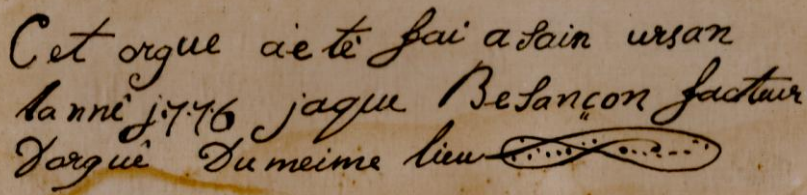 Cet orgue aietè fai a sain ursan
lannê j776 jaque Besançon facteur
Dorguê Dumeime lieu